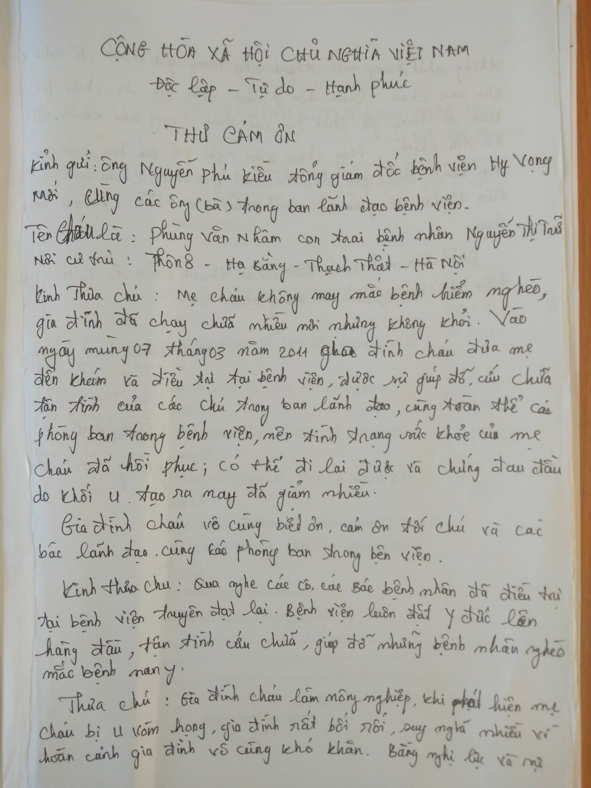 CỘNG HÒA XÃ HỘI CHỦ NGHĨA VIỆT NAM
Độc lập - Tự do - Hạnh phúc
THƯ CẢM ƠN
Kính gửi: ông Nguyễn Phú Kiều tổng giám đốc bệnh viện Hy Vọng
Mới, Cùng các ông (bà) trong ban lãnh đạo bệnh viện.
Tên Cháu là: Phùng Văn Nhâm con trai bệnh nhân Nguyễn Thị
Nơi cư trú: Thôn 8 - Hạ Bằng - Thạch Thất - Hà Nội
Kính Thưa chú: Mẹ cháu không may mắc bệnh hiểm nghèo,
gia đình đã chạy chữa nhiều nơi nhưng không khỏi. Vào
ngày mùng 07 tháng 03 năm 2011 đình cháu đưa mẹ
đến khám và điều trị tại bệnh viện, được sự giúp đỡ, cứu chữa
tận tình của các chú trong ban lãnh đạo, cùng toàn thể các
phòng ban trong bệnh viện, nên tình trạng sức khỏe của mẹ
cháu đã hồi phục; có thể đi lại được và chứng đau đầu
do khối u tạo ra nay đã giảm nhiều.
Gia đình cháu vô cùng biết ơn, cảm ơn tới chú và các
bác lãnh đạo cùng các phòng ban trong bện viện.
Kính thưa chu: Qua nghe các cô, các bác bệnh nhân đã điều trị
tại bệnh viện truyền đạt lại. Bệnh viện luôn đặt Y đức lên
hàng đầu, tận tình cứu chữa, giúp đỡ những bệnh nhân nghèo
mắc bệnh nan y.
Thưa chú: Gia đình cháu làm nông nghiệp, khi phát hiện mẹ
cháu bị u vòm họng, gia đình rất bối rối, suy nghĩ nhiều vì
hoàn cảnh gia đình vô cùng khó khăn. Bằng nghị lực và